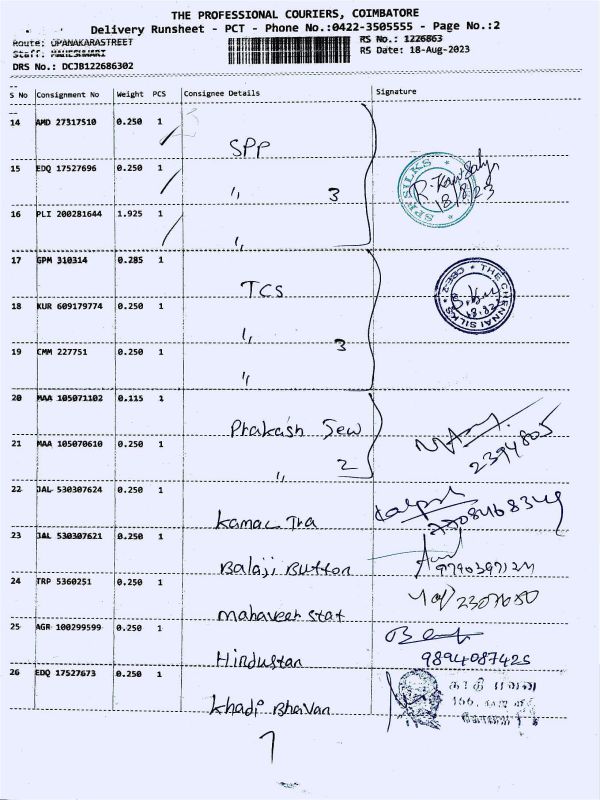 THE PROFESSIONAL COURIERS, COIMBATORE
Delivery Runsheet - PCT - Phone No.:0422-3505555 - Page No.:2
Route: UPANAKARASTREET
RS No.: 1226863
Staff: MAHESWARI
RS Date: 18-Aug-2023
DRS No.: DCJB122686302
S No Consignment No Weight PCS Consignee Details Signature
14 AMD 27317510 0.250 1
SPP
15 EDQ 17527696 0.250 1
" 3
SPP SILKS
18/8/23
16 PLI 200281644 1.925 1
"
17 GPM 310314 0.285 1
TCS
THE CHENNAI SILKS
18 KUR 609179774 0.250 1
" 3
19 CMM 227751 0.250 1
"
20 MAA 105071102 0.115 1
Prakash Jew
21 MAA 105070610 0.250 1
" 2
2394805
22 JAL 530307624 0.250 1
Kamac Tra
23 JAL 530307621 0.250 1
Balaji Button
24 TRP 5360251 0.250 1
mahaveer stat
25 AGR 100299599 0.250 1
Hindustan
9894087425
26 EDQ 17527673 0.250 1
Khadi Bhavan
7